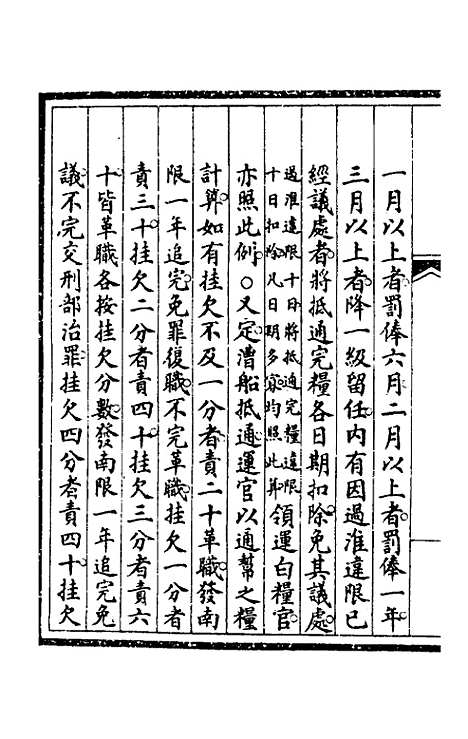 一月以上者罰俸六月二月以上者罰俸一年
三月以上者降一級留任内有因過淮違限已
經議處者將抵通完糧各日期扣除免其議處
過淮違限十日將抵通完糧違限
十日扣除凡日期多寡均照此算
領運白糧官
亦照此例○又定漕船抵通運官以通幫之糧
計算如有挂欠不及一分者責二十革職發南
限一年追完免罪復職不完革職挂欠一分者
責三十挂欠二分者責四十挂欠三分者責六
十皆革職各按挂欠分數發南限一年追完免
議不完交刑部治罪挂欠四分者責四十挂欠